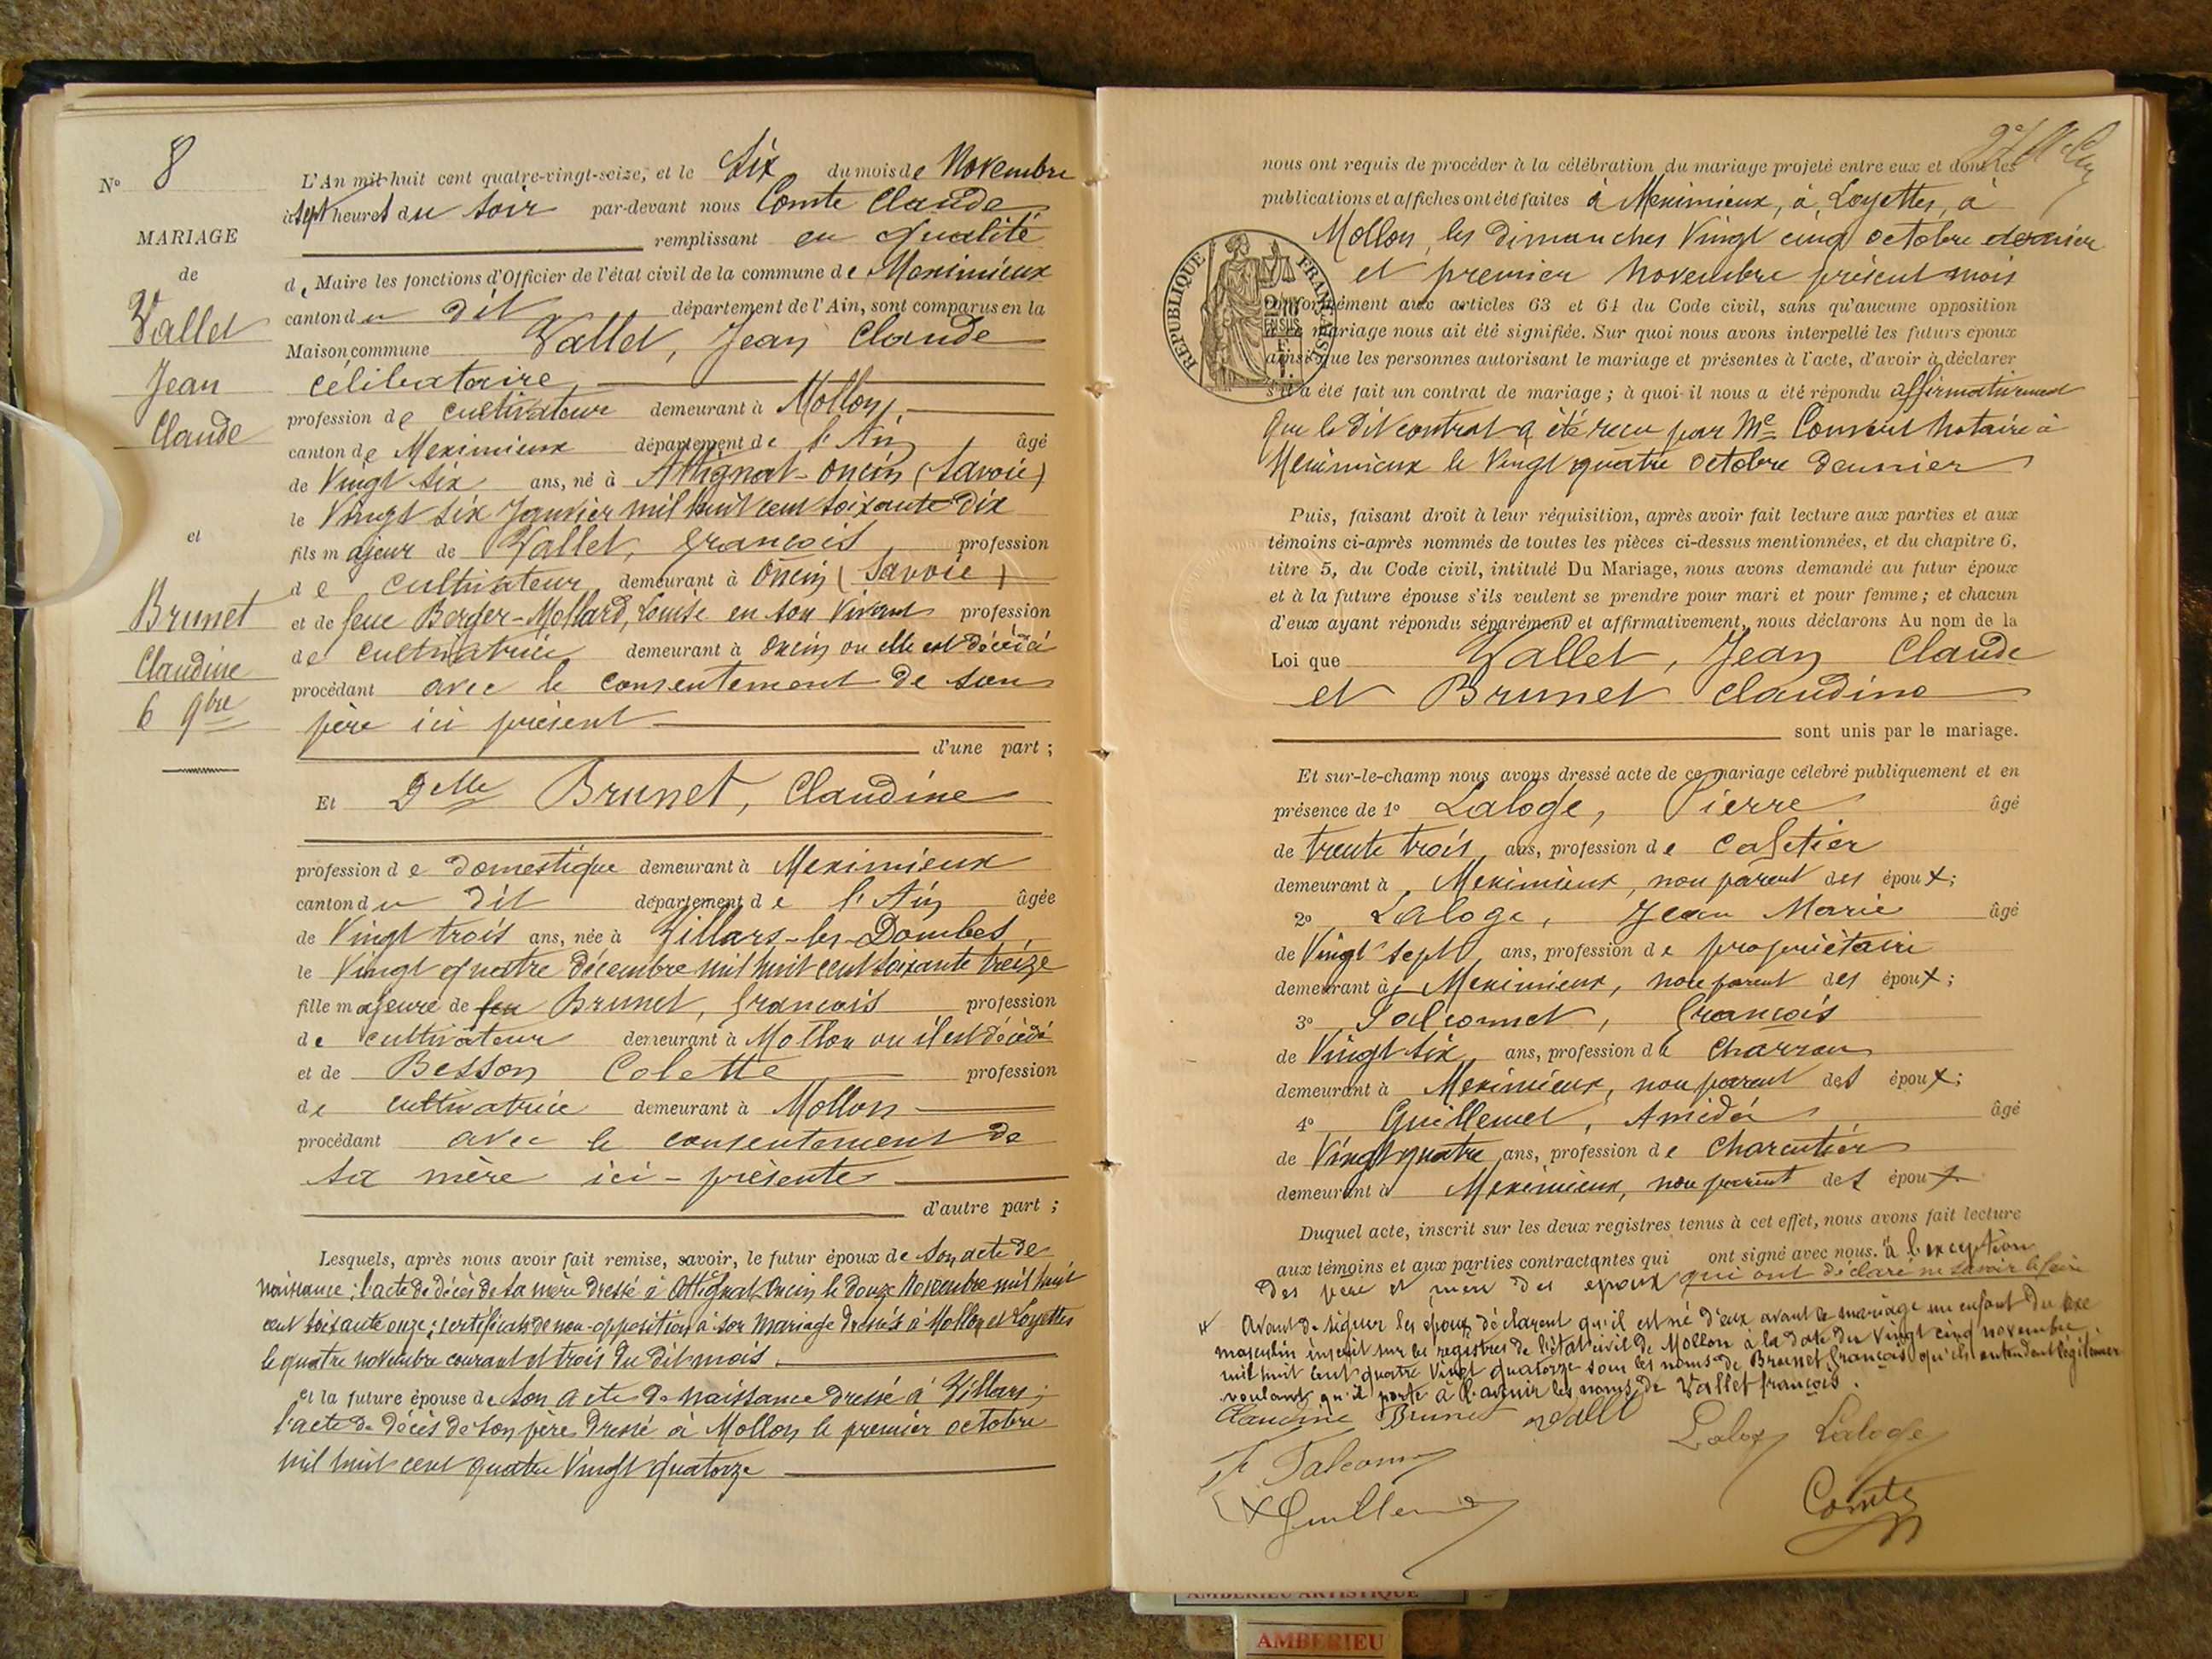 N° 8
MARIAGE
de
Vallet
Jean
Claude
et
Brunet
Claudine
6 9bre
L'An mil huit cent quatre-vingt-seize, et le Six du mois de Novembre
à sept heures du soir par-devant nous Comte Claude
remplissant en qualité
de Maire les fonctions d'Officier de l'état civil de la commune de Meximieux
canton du dit département de l'Ain, sont comparus en la
Maison commune Vallet, Jean Claude
célibataire,
profession de cultivateur demeurant à Mollon,
canton de Meximieux département de l'Ain, âgé
de Vingt six ans, né à Attignat-Oncin (Savoie)
le Vingt six Janvier mil huit cent soixante dix
fils majeur de Vallet, François, profession
de cultivateur demeurant à Oncin (Savoie)
et de feue Berger-Mollard, Louise en son vivant profession
de cultivatrice demeurant à Oncin ou elle est décédée
procédant avec le consentement de son
père ici présent
d'une part ;
Et Delle Brunet, Claudine
profession de domestique demeurant à Meximieux
canton du dit département de l'Ain âgée
de Vingt trois ans, née à Villars-les-Dombes
le Vingt quatre décembre mil huit cent soixante treize
fille majeure de feu Brunet, François profession
de cultivateur demeurant à Mollon ou il est décédé
et de Besson Colette profession
de cultivatrice demeurant à Mollon
procédant avec le consentement de
sa mère ici-présente
d'autre part ;
Lesquels, après nous avoir fait remise, savoir, le futur époux de son acte de
naissance ; l'acte de décès de sa mère dressé à Attignat-Oncin le douze Novembre mil huit
cent soixante onze ; certificats de non-opposition à son mariage dressés à Mollon et Loyettes
le quatre novembre courant et trois du dit mois.
et la future épouse de son acte de naissance dressé à Villars ;
l'acte de décès de son père dressé à Mollon le premier octobre
mil huit cent quatre vingt quatorze
nous ont requis de procéder à la célébration du mariage projeté entre eux et dont les
publications et affiches ont été faites à Meximieux, à Loyettes, à
Mollon, les dimanches Vingt cinq octobre dernier
et premier Novembre présent mois
RÉPUBLIQUE FRANÇAISE
conformément aux articles 63 et 64 du Code civil, sans qu'aucune opposition
mariage nous ait été signifiée. Sur quoi nous avons interpellé les futurs époux
ainsi que les personnes autorisant le mariage et présentes à l'acte, d'avoir à déclarer
s'il a été fait un contrat de mariage ; à quoi il nous a été répondu affirmativement
Que le dit contrat a été recu par Me notaire à
Meximieux le Vingt quatre octobre dernier
Puis, faisant droit à leur réquisition, après avoir fait lecture aux parties et aux
témoins ci-après nommés de toutes les pièces ci-dessus mentionnées, et du chapitre 6,
titre 5, du Code civil, intitulé Du Mariage, nous avons demandé au futur époux
et à la future épouse s'ils veulent se prendre pour mari et pour femme ; et chacun
d'eux ayant répondu séparément et affirmativement, nous déclarons Au nom de la
Loi que Vallet, Jean Claude
et Brunet Claudine
sont unis par le mariage.
Et sur-le-champ nous avons dressé acte de ce mariage célébré publiquement et en
présence de 1° Laloge, Pierre âgé
de trente trois ans, profession de cafetier
demeurant à Meximieux, non parent des époux ;
2° Laloge, Jean Marie âgé
de Vingt sept ans, profession de propriétaire
demeurant à Meximieux, non parent des époux ;
3° Falconnet, François
de Vingt six ans, profession de Charron
demeurant à Meximieux, non parent des époux ;
4° Guillemet, Amédée âgé
de Vingt quatre ans, profession de Charcutier
demeurant à Meximieux, non parent des époux.
Duquel acte, inscrit sur les deux registres tenus à cet effet, nous avons fait lecture
aux témoins et aux parties contractantes qui ont signé avec nous. à l'exception
des père et mère des époux qui ont déclaré ne savoir le faire
Avant de signer les époux déclarent qu'il est né d'eux avant le mariage un enfant du sexe
masculin inscrit sur les registres de l'état civil de Mollon à la date du vingt cinq novembre
mil huit cent quatre vingt quatorze sous les noms de Brunet François qu'ils entendent légitimer
voulant qu'il porte à l'avenir les noms de Vallet françois.
Claudine Brunet Vallet
Laloge Laloge
F Falconnet
Guillemet
Comte
AMBERIEU ARTISTIQUE
AMBERIEU